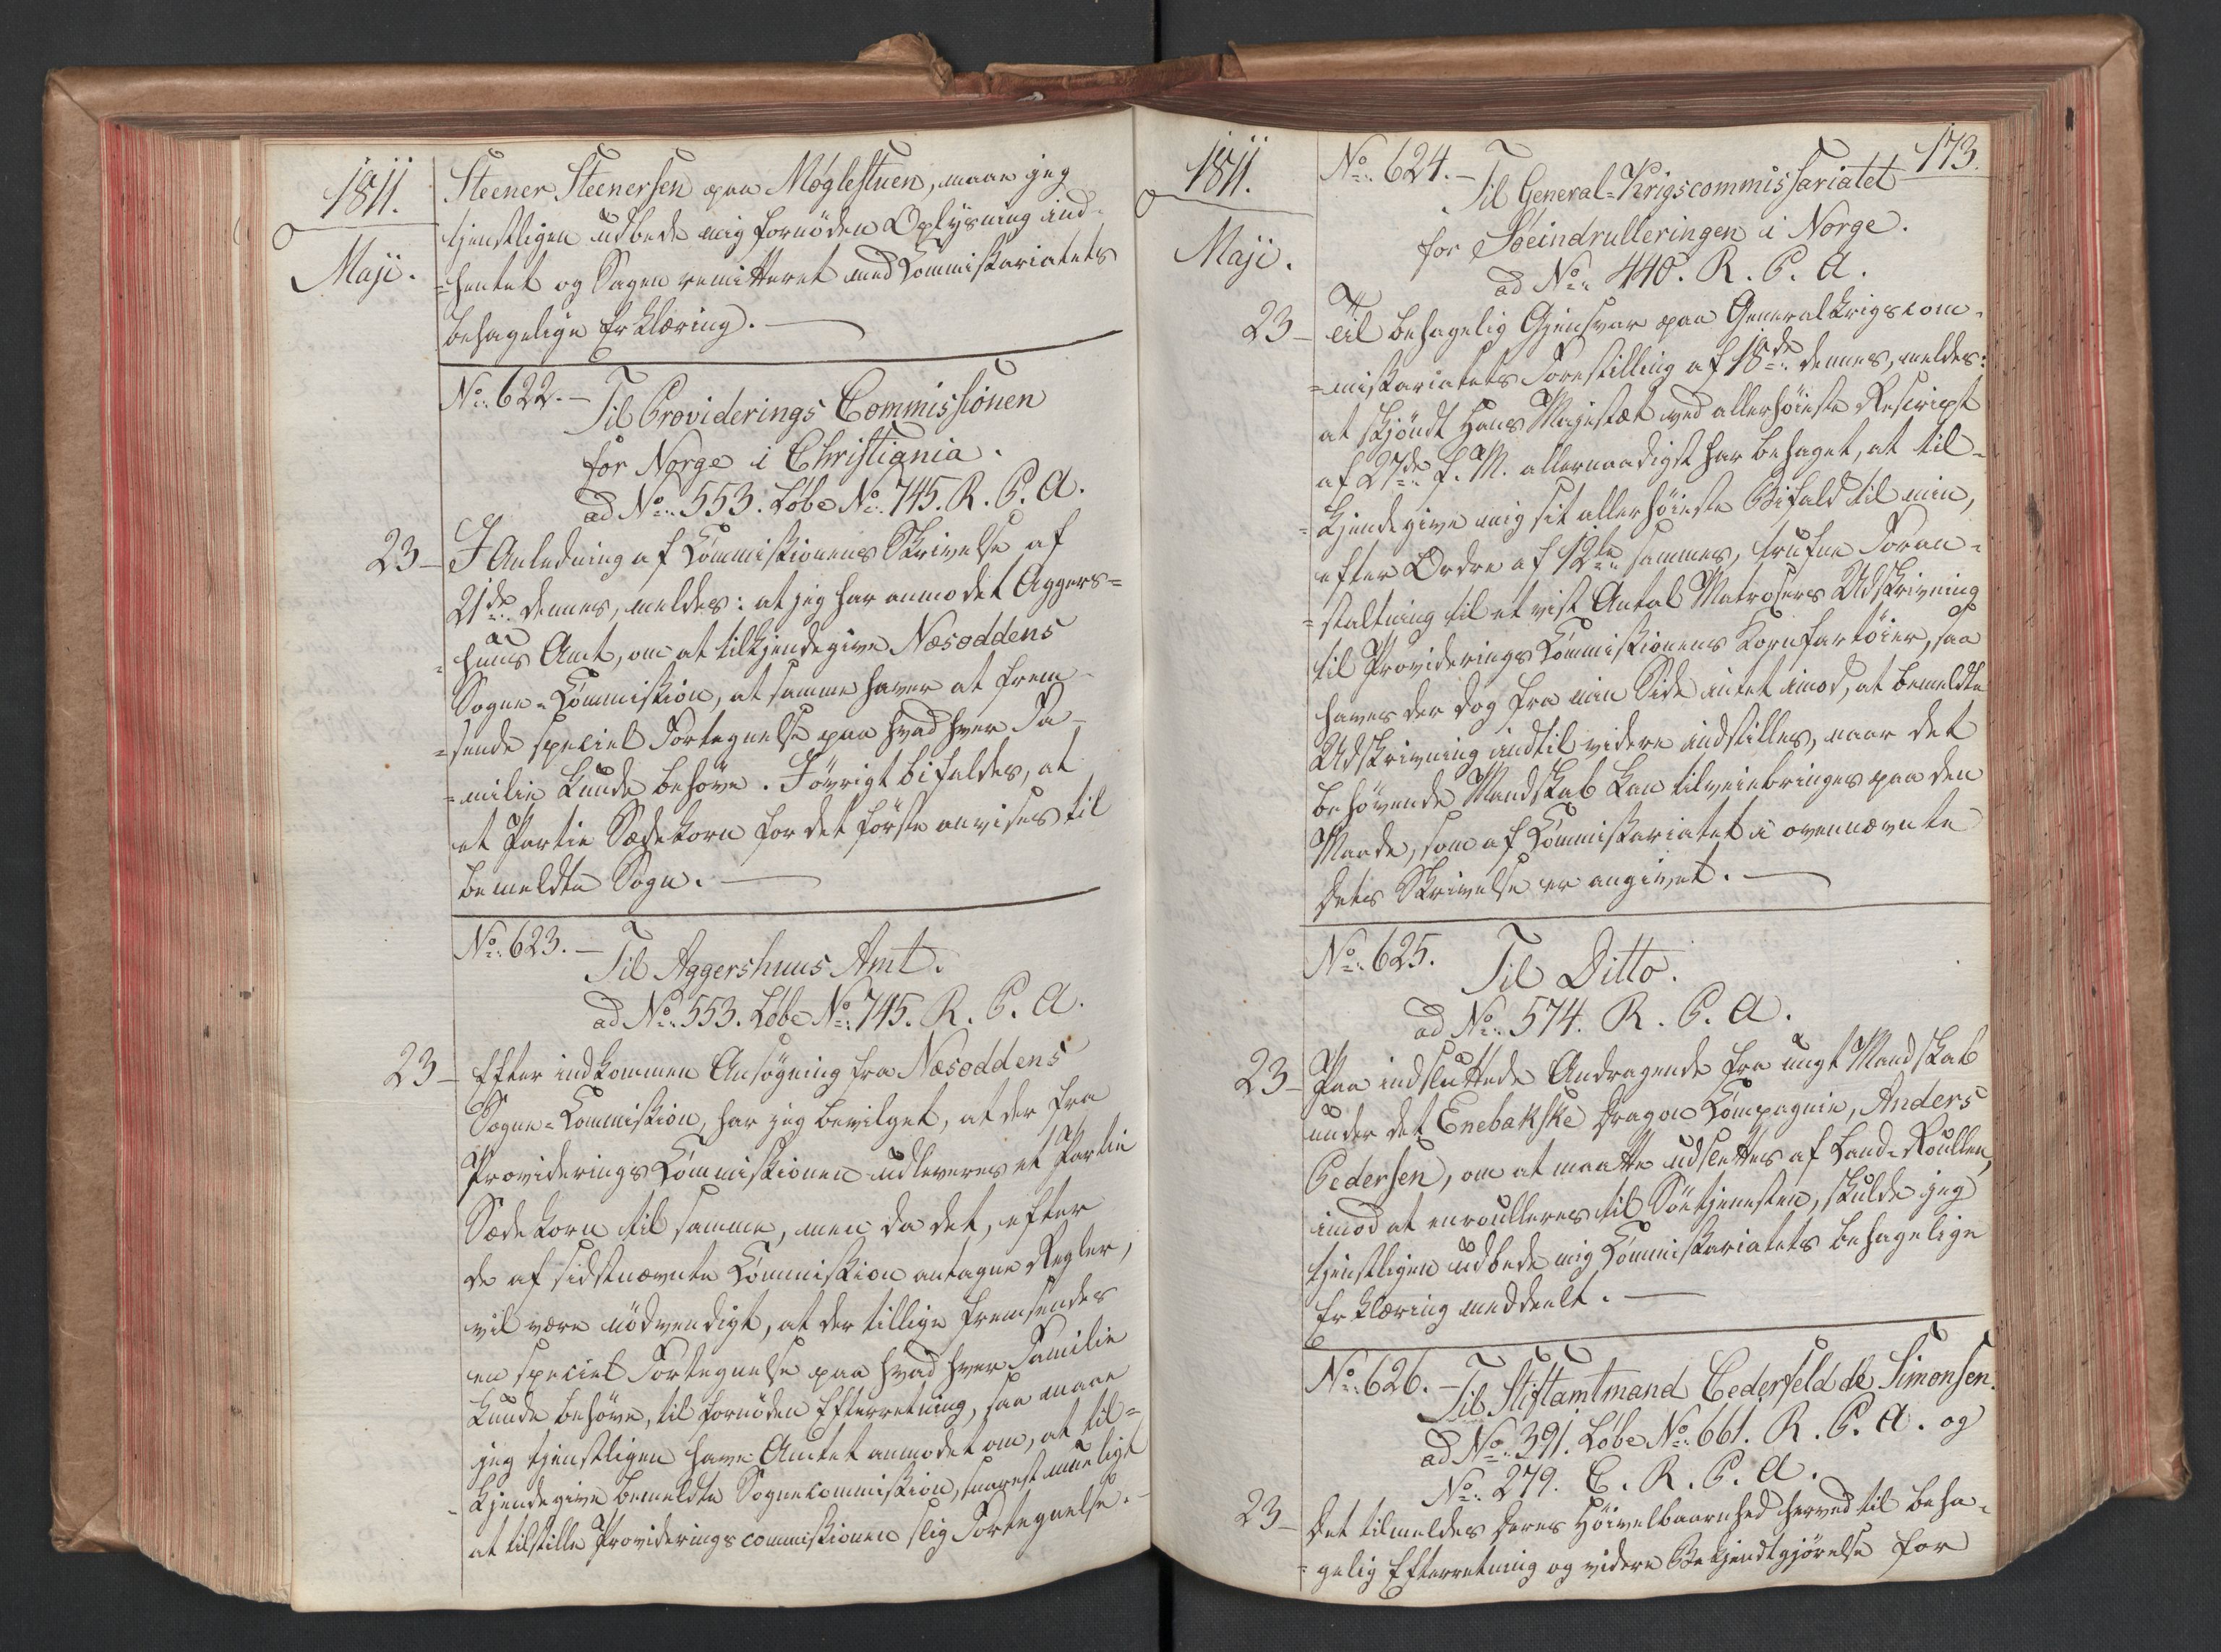 1811.
Maji.
Steener Steenersen paa Møglestuen, maae jeg
tjenstligen udbede mig fornøden Oplysning ind-
=hentet og Sagen remitteret med Commissariatets
behagelige Erklæring. —
No. 622. — Til Providerings Commissionen
for Norge i Christiania.
ad No. 553. Løbe No. 745. R. P. A.
23 — I Anledning af Commissionens Skrivelse af
21de dennes, meldes: at jeg har anmodet Aggers=
=huus Amt, om at tilkjendegive Næsoddens
Sogne-Commission, at samme haver at frem-
=sende speciel Fortegnelse paa hvad hver Fa-
=milie kunde behøve. I øvrigt bifaldes, at
et Partie Sædekorn for det første anvises til
bemeldte Sogn. —
No. 623. — Til Aggershuus Amt.
ad No. 553. Løbe No. 745. R. P. A.
23 — Efter indkommen Ansøgning fra Næsoddens
Sogne-Commission, har jeg bevilget, at der fra
Providerings Commissionen udleveres et Partie
Sædekorn til samme, men da det, efter
de af sidstnævnte Commission antagne Regler,
vil være nödvendigt, at der tillige fremsendes
en speciel Fortegnelse paa hvad hver Familie
kunde behøve, til fornøden Efterretning, saa maae
jeg tjenstligen have Amtet anmodet om, at til=
=kjendegive bemeldte Sognecommission, snarest mueligt
at tilstille Provideringscommissionen slig Fortegnelse. —
173.
1811.
Maji.
No. 624. — Til General-Krigscommissariatet
for Søeindrulleringen i Norge.
ad No. 440. R. P. A.
23 — Til behagelig Gjensvar paa Generalkrigscom-
=missariatets Forestilling af 18de dennes, meldes:
at skjøndt Hans Majestæt ved allerhöieste Rescript
af 27de f. M. allernaadigst har behaget, at til-
=kjendegive mig sit allerhöieste Bifald til min,
efter Ordre af 12te sammes, trufne Foran-
=staltning til et vist Antal Matrosers Udskrivning
til Providerings Commissionens Kornfartöier, saa
haves der dog fra min Side intet imod, at bemeldte
Udskrivning indtil videre indstilles, naar det
behøvende Mandskab kan tilveiebringes paa den
Maade, som af Commissariatet i ovennævnte
dets Skrivelse er angivet. —
No. 625. Til Ditto.
ad No. 574. R. P. A.
23 — Paa indsluttede Andragende fra ungt Mandskab
under det Enebakske Dragon Compagnie, Anders
Pedersen, om at maatte udslettes af Land-Roullen,
imod at enroulleres til Söetjenesten, skulde jeg
tjenstligen udbede mig Commissariatets behagelige
Erklæring meddeelt. —
No. 626. — Til Stiftamtmand Cederfeld de Simonsen.
ad No. 391. Løbe No. 661. R. P. A. og
No. 279. C. R. P. A.
23 — Det tilmeldes Deres Höivelbaarnhed herved til beha-
=gelig Efterretning og videre Bekjendtgjörelse for